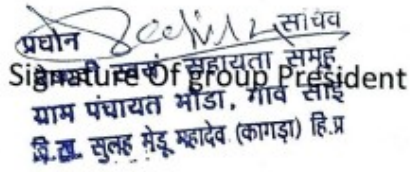 प्रधान सचिव
स्वयं सहायता समूह
Signature Of group President
ग्राम पंचायत मोंडा, गांव साई
बि.ख. सुलह भेडू महादेव (कागड़ा) हि.प्र